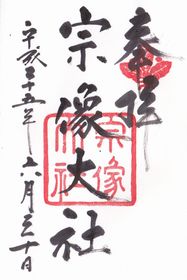 奉拝
宗像大社
平成二十五年六月三十日
宗像大社